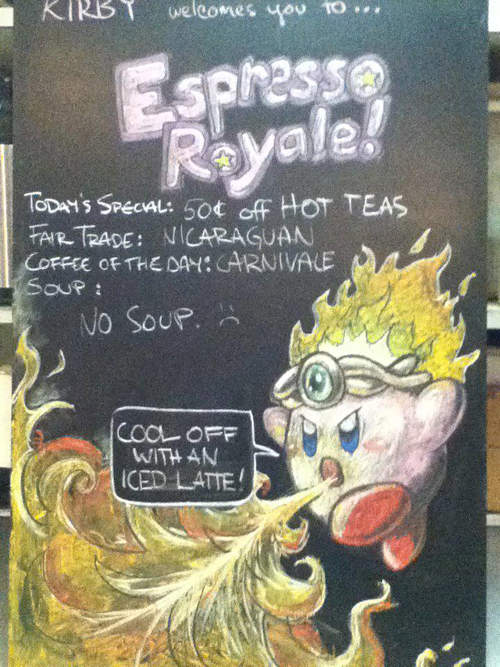 KIRBY welcomes you to...
Espresso
Royale!
TODAY'S SPECIAL: 50¢ off HOT TEAS
FAIR TRADE: NICARAGUAN
COFFEE OF THE DAY: CARNIVALE
SOUP:
NO SOUP. ☹
COOL OFF
WITH AN
ICED LATTE!